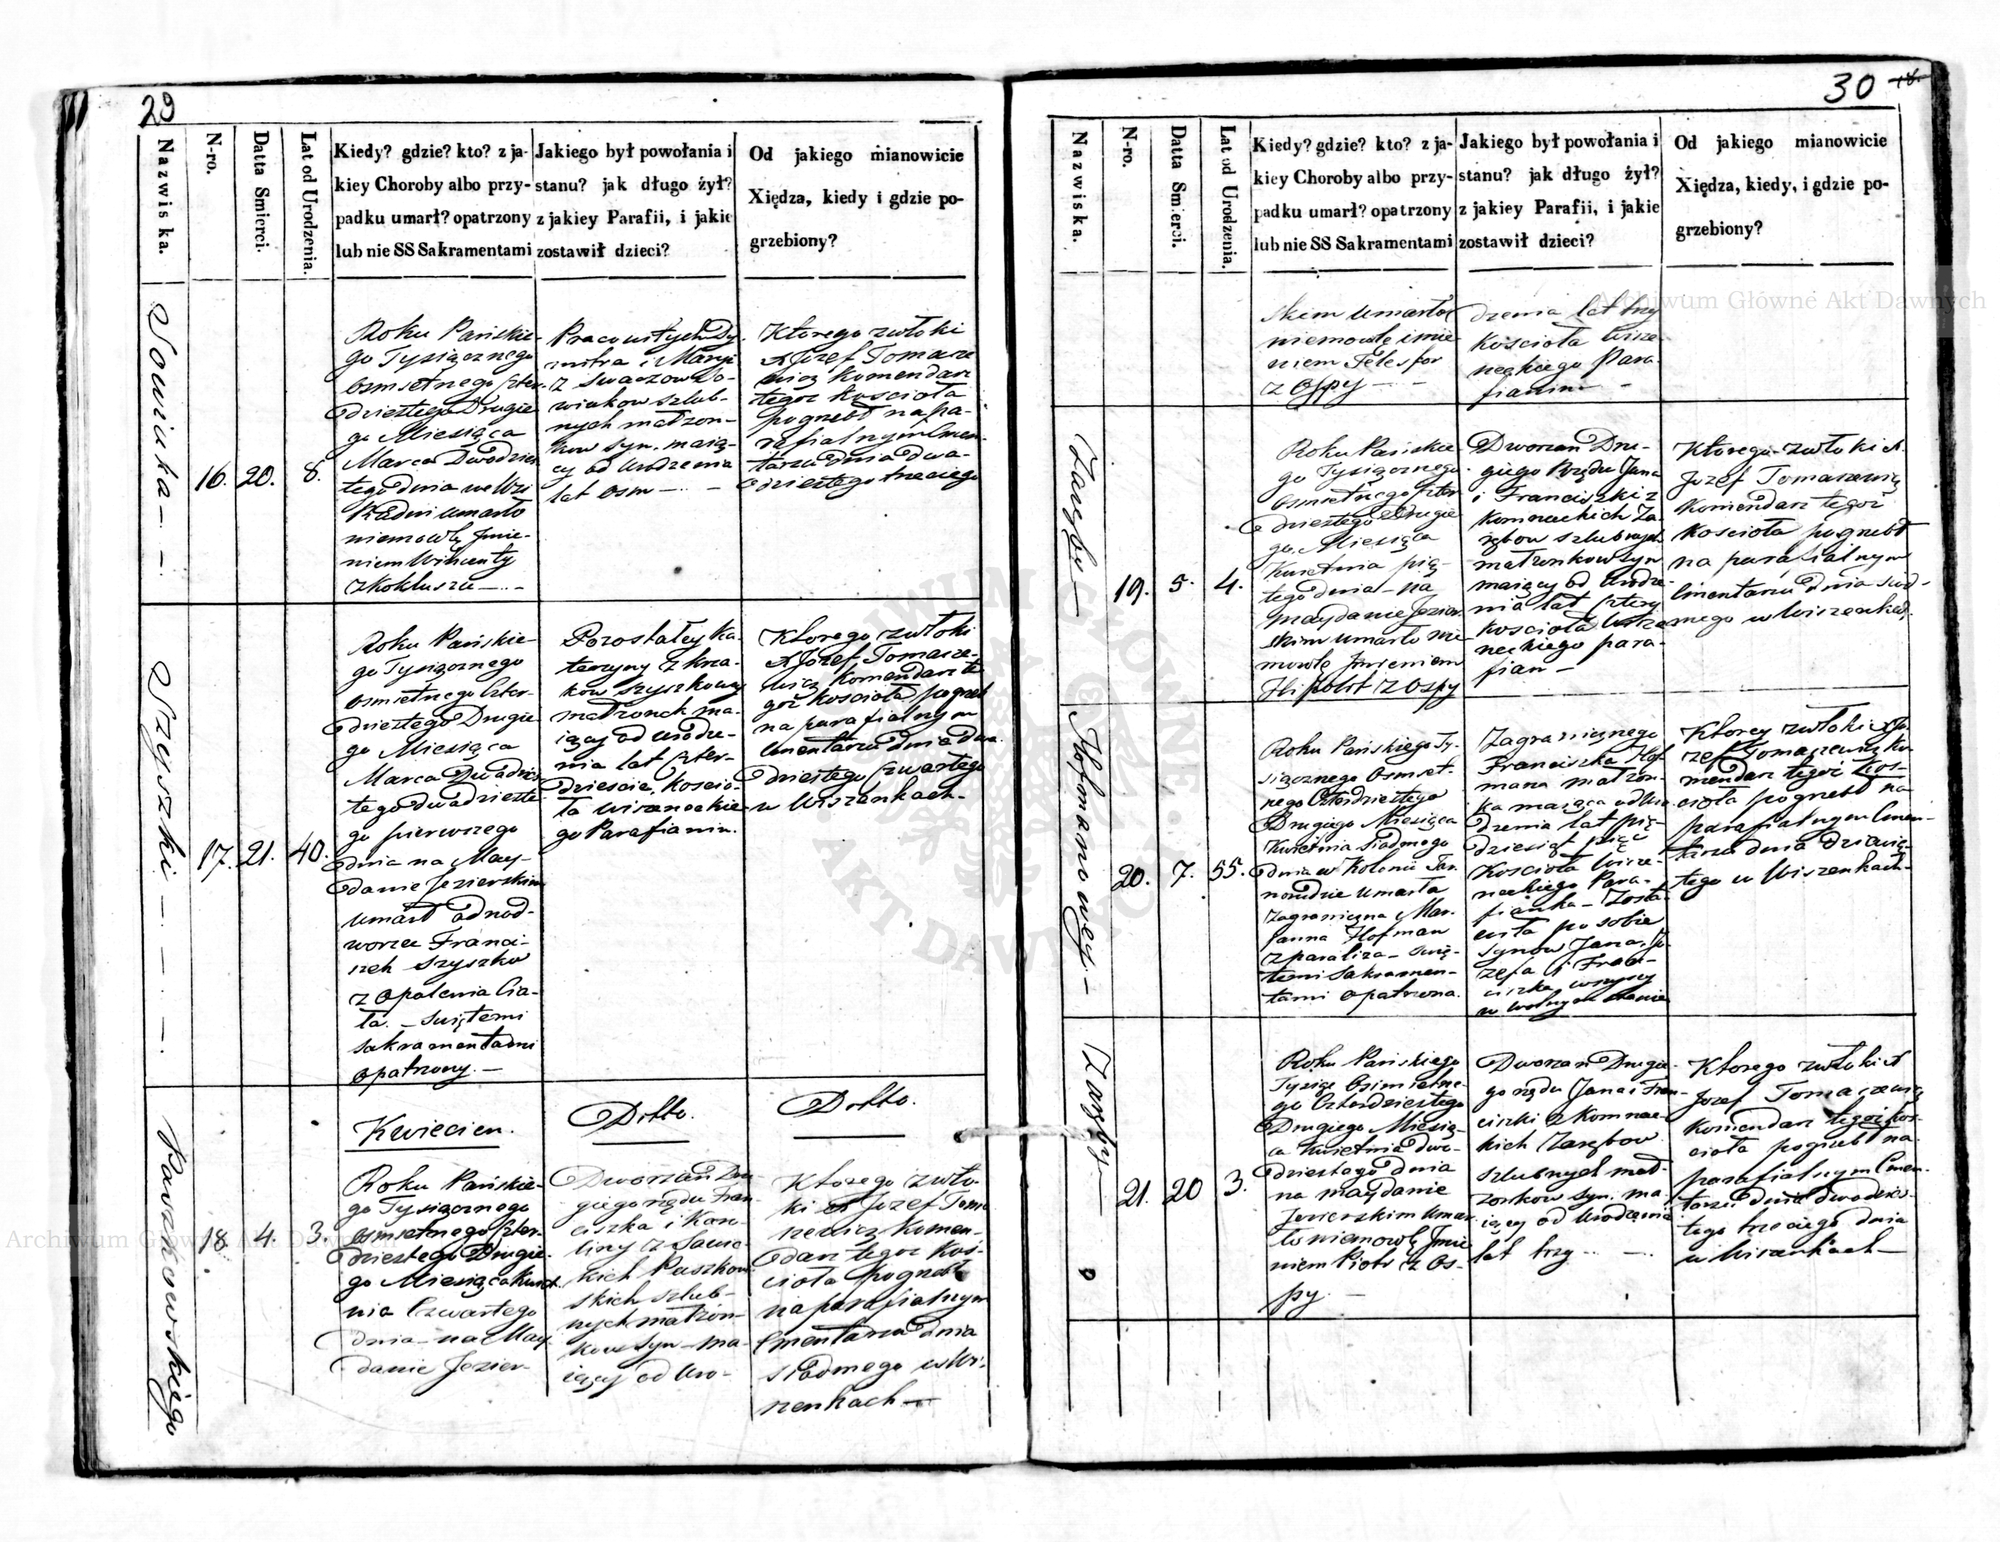 29
Nazwiska.
N-ro.
Datta Smierci.
Lat od Urodzenia.
Kiedy? gdzie? kto? z ja-
kiey Choroby albo przy-
padku umarł? opatrzony
lub nie SS Sakramentami
Jakiego był powołania i
stanu? jak długo żył?
z jakiey Parafii, i jakie
zostawił dzieci?
Od jakiego mianowicie
Xiędza, kiedy i gdzie po-
grzebiony?
Sowiuka
16.
20.
8.
Roku Pańskie-
go Tysiącznego
osmsetnego czter-
dziestego Drugie-
go Miesiąca
Marca Dwódzies
tego dnia we Wsi
umarło
niemowlę Jmie-
niem Wincenty
z Kokluszu
Pracowitych Dy-
mitra i Maryi
z Swaczow So-
wiukow szlub-
nych małżon-
kow syn. maią-
cy od Urodzenia
lat osm
Ktorego zwłoki
X Jozef Tomasze
wicz Komendarz
tegoż Kościoła
pogrzebł na pa-
rafialnym Cmen-
tarzu dnia dwa-
dziestego trzeciego
Szyszki
17.
21.
40.
Roku Pańskie-
go Tysiącznego
osmsetnego Czter-
dziestego Drugie-
go Miesiąca
Marca Dwadzies
tego dwadzieste-
go pierwszego
dnia na May-
danie Jezierskim
umarł odnod-
worzec Franci-
szek Szyszko
z opalenia Cia-
ła. – Swiętemi
Sakramentami
opatrzony. –
Pozostałey Ka-
tarzyny z Kra-
kow Szyszkowy
małżonek ma-
iący od Urodze-
nia lat czter-
dzieście, Koscio-
ła wiszeneckie-
go Parafianin.
Ktorego zwłoki
X Jozef Tomasze-
wicz Komendarz te
goż Kościoła pogrzebł
na parafialnym
Cmentarzu dnia Dwa-
dziestego czwartego
w Wiszenkach.
Kwiecien.
Ditto.
Ditto.
Paszkowskiego
18.
4.
3.
Roku Pańskie-
go Tysiącznego
osmsetnego czter-
dziestego Drugie-
go Miesiąca Kwiet-
nia Czwartego
dnia – na May-
danie Jezier-
Dworzan Dru
giego rzędu Fran-
ciszka i Karo-
liny z Sawic-
kich Paszkow-
skich szlub-
nych małżon-
kow syn – ma-
iący od Uro-
Ktorego zwło-
ki X Jozef Toma
szewicz Komen-
darz tegoż Koś-
cioła pogrzebł
na parafialnym
Cmentarzu dnia
siodmego w Wi-
szenkach –
30
Nazwiska.
N-ro.
Datta Smierci.
Lat od Urodzenia.
Kiedy? gdzie? kto? z ja-
kiey Choroby albo przy-
padku umarł? opatrzony
lub nie SS Sakramentami
Jakiego był powołania i
stanu? jak długo żył?
z jakiey Parafii, i jakie
zostawił dzieci?
Od jakiego mianowicie
Xiędza, kiedy, i gdzie po-
grzebiony?
skim umarło
niemowlę imie-
niem Telesfor
z Ospy
dzenia lat trzy
Kościoła Wisze-
neckiego Para-
fianin –
Zaręby
19.
5.
4.
Roku Pańskie
go Tysiącznego
osmsetnego czter
dziestego Drugie
go Miesiąca
Kwietnia pią-
tego dnia – na
Maydanie Jezier-
skim umarło nie
mowlę Jmieniem
Hipolit z Ospy
Dworzan Dru-
giego Rzędu Jana
i Franciszki z
Komneckich Za-
rębow szlubnych
małżonkow syn
maiący od Urodze-
nia lat cztery
Kościoła Wisze-
neckiego para-
fian –
Ktorego zwłoki X.
Jozef Tomaszewicz
Komendarz tegoż
Kościoła pogrzebł
na parafialnym
Cmentarzu dnia siod-
mego w Wiszenkach.
Hofmanowey
20.
7.
55.
Roku Pańskiego Ty-
siącznego Osmset-
nego Czterdziestego
Drugiego Miesiąca
Kwietnia siodmego
dnia w Kolonii
umarła
Zagraniczna Mar-
janna Hofman
z paraliża – świę-
temi Sakramen-
tami opatrzona.
Zagranicznego
Franciszka Hof-
mana małżon-
ka maiąca od Uro-
dzenia lat pię-
dziesiąt pięć
Kościoła Wisze-
neckiego Para-
fianka – Zosta-
wiła po sobie
synow Jana, Jo-
zefa i Fran-
ciszka, wszyscy
w wolnym stanie
Ktorey zwłoki X Jo-
zef Tomaszewicz Ko-
mendarz tegoż Koś-
cioła pogrzebł na
parafialnym Cmen-
tarzu dnia dziewią-
tego w Wiszenkach
Zaręby
21.
20
3.
Roku Pańskiego
Tysiąc Osimsetne-
go Czterdziestego
Drugiego Miesią-
ca Kwietnia dwu-
dziestego dnia
na maydanie
Jezierskim umar
ło niemowlę Jmie
niem Piotr z Os-
py. –
Dworzan Drugie-
go rzędu Jana i Fran-
ciszki z Komnac-
kich Zarębow
szlubnych mał-
żonkow syn. ma-
iący od Urodzenia
lat trzy
Ktorego zwłoki X
Jozef Tomaszewicz
Komendarz tegoż Koś-
cioła pogrzebł na
parafialnym Cmen-
tarzu dnia dwudzies-
tego trzeciego dnia
w Wiszenkach –
Archiwum Główne Akt Dawnych
Archiwum Główne Akt Dawnych
ARCHIWUM GŁÓWNE
AKT DAWNYCH